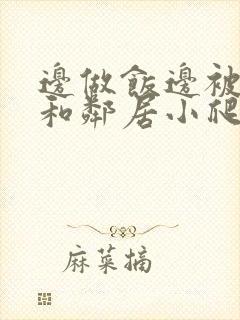 邊做飯邊被
和鄰居小爬
麻菜摘